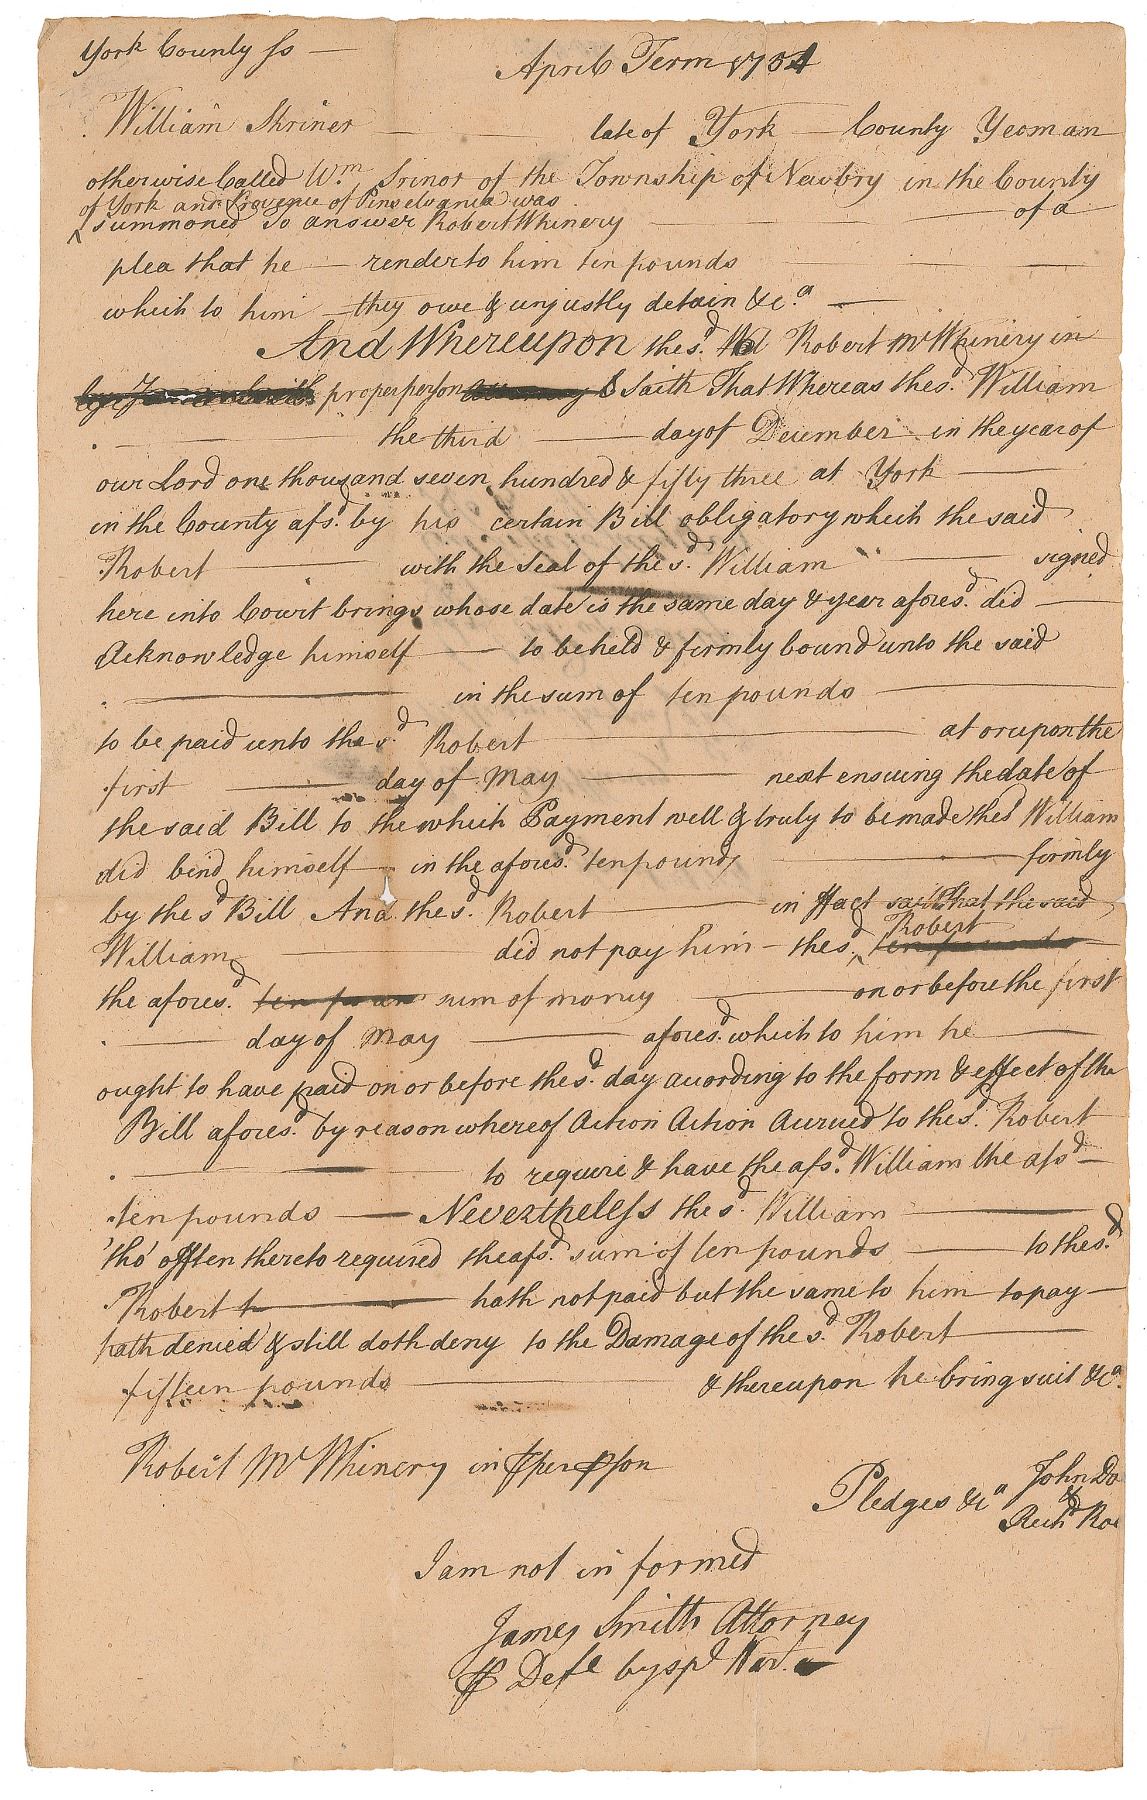 York County ss —
April Term 1754
William Skriner — late of York — County Yeoman
otherwise Called Wm. Srinor of the Township of Newbry in the County
of York and Provence of Pinselvania was
summoned to answer Robert Whinery — of a
plea that he — render to him ten pounds
which to him — they owe & unjustly detain &c.a —
And Whereupon the sd. Robert McWhinery in
proper person & saith That Whereas the sd. William
— the third — day of December in the year of
our Lord one thousand seven hundred & fifty three at York —
in the County afsd. by his certain Bill obligatory which the said
Robert — with the Seal of the sd. William — signed
here into Court brings whose date is the same day & year aforesd. did —
Acknowledge himself — to be held & firmly bound unto the said
— in the sum of ten pounds —
to be paid unto the sd. Robert — at or upon the
first — day of May — next ensuing the date of
the said Bill to the which Payment well & truly to be made the sd William
did bind himself — in the aforesd. ten pounds — firmly
by the sd Bill And the sd. Robert — in ffact saith that the said
William — did not pay him — the sd. Robert ten pounds
the aforesd. ten poun sum of money — on or before the first
— day of May — aforesd. which to him he —
ought to have paid on or before the sd. day according to the form & effect of the
Bill aforesd. by reason whereof Action Action Accrued to the sd. Robert
— to require & have the afsd. William the afsd —
ten pounds — Nevertheless the sd. William —
'tho' offten thereto required the afsd. sum of ten pounds — to the sd.
Robert t — hath not paid but the same to him to pay —
hath denied & still doth deny to the Damage of the sd. Robert —
fifteen pounds — & thereupon he bring suit &ca.
Robert Mc Whinery in pson
Pledges &ca John Do
&
Richd Roe
I am not in formed
James Smith Attorney
P Deft by spl Wart.